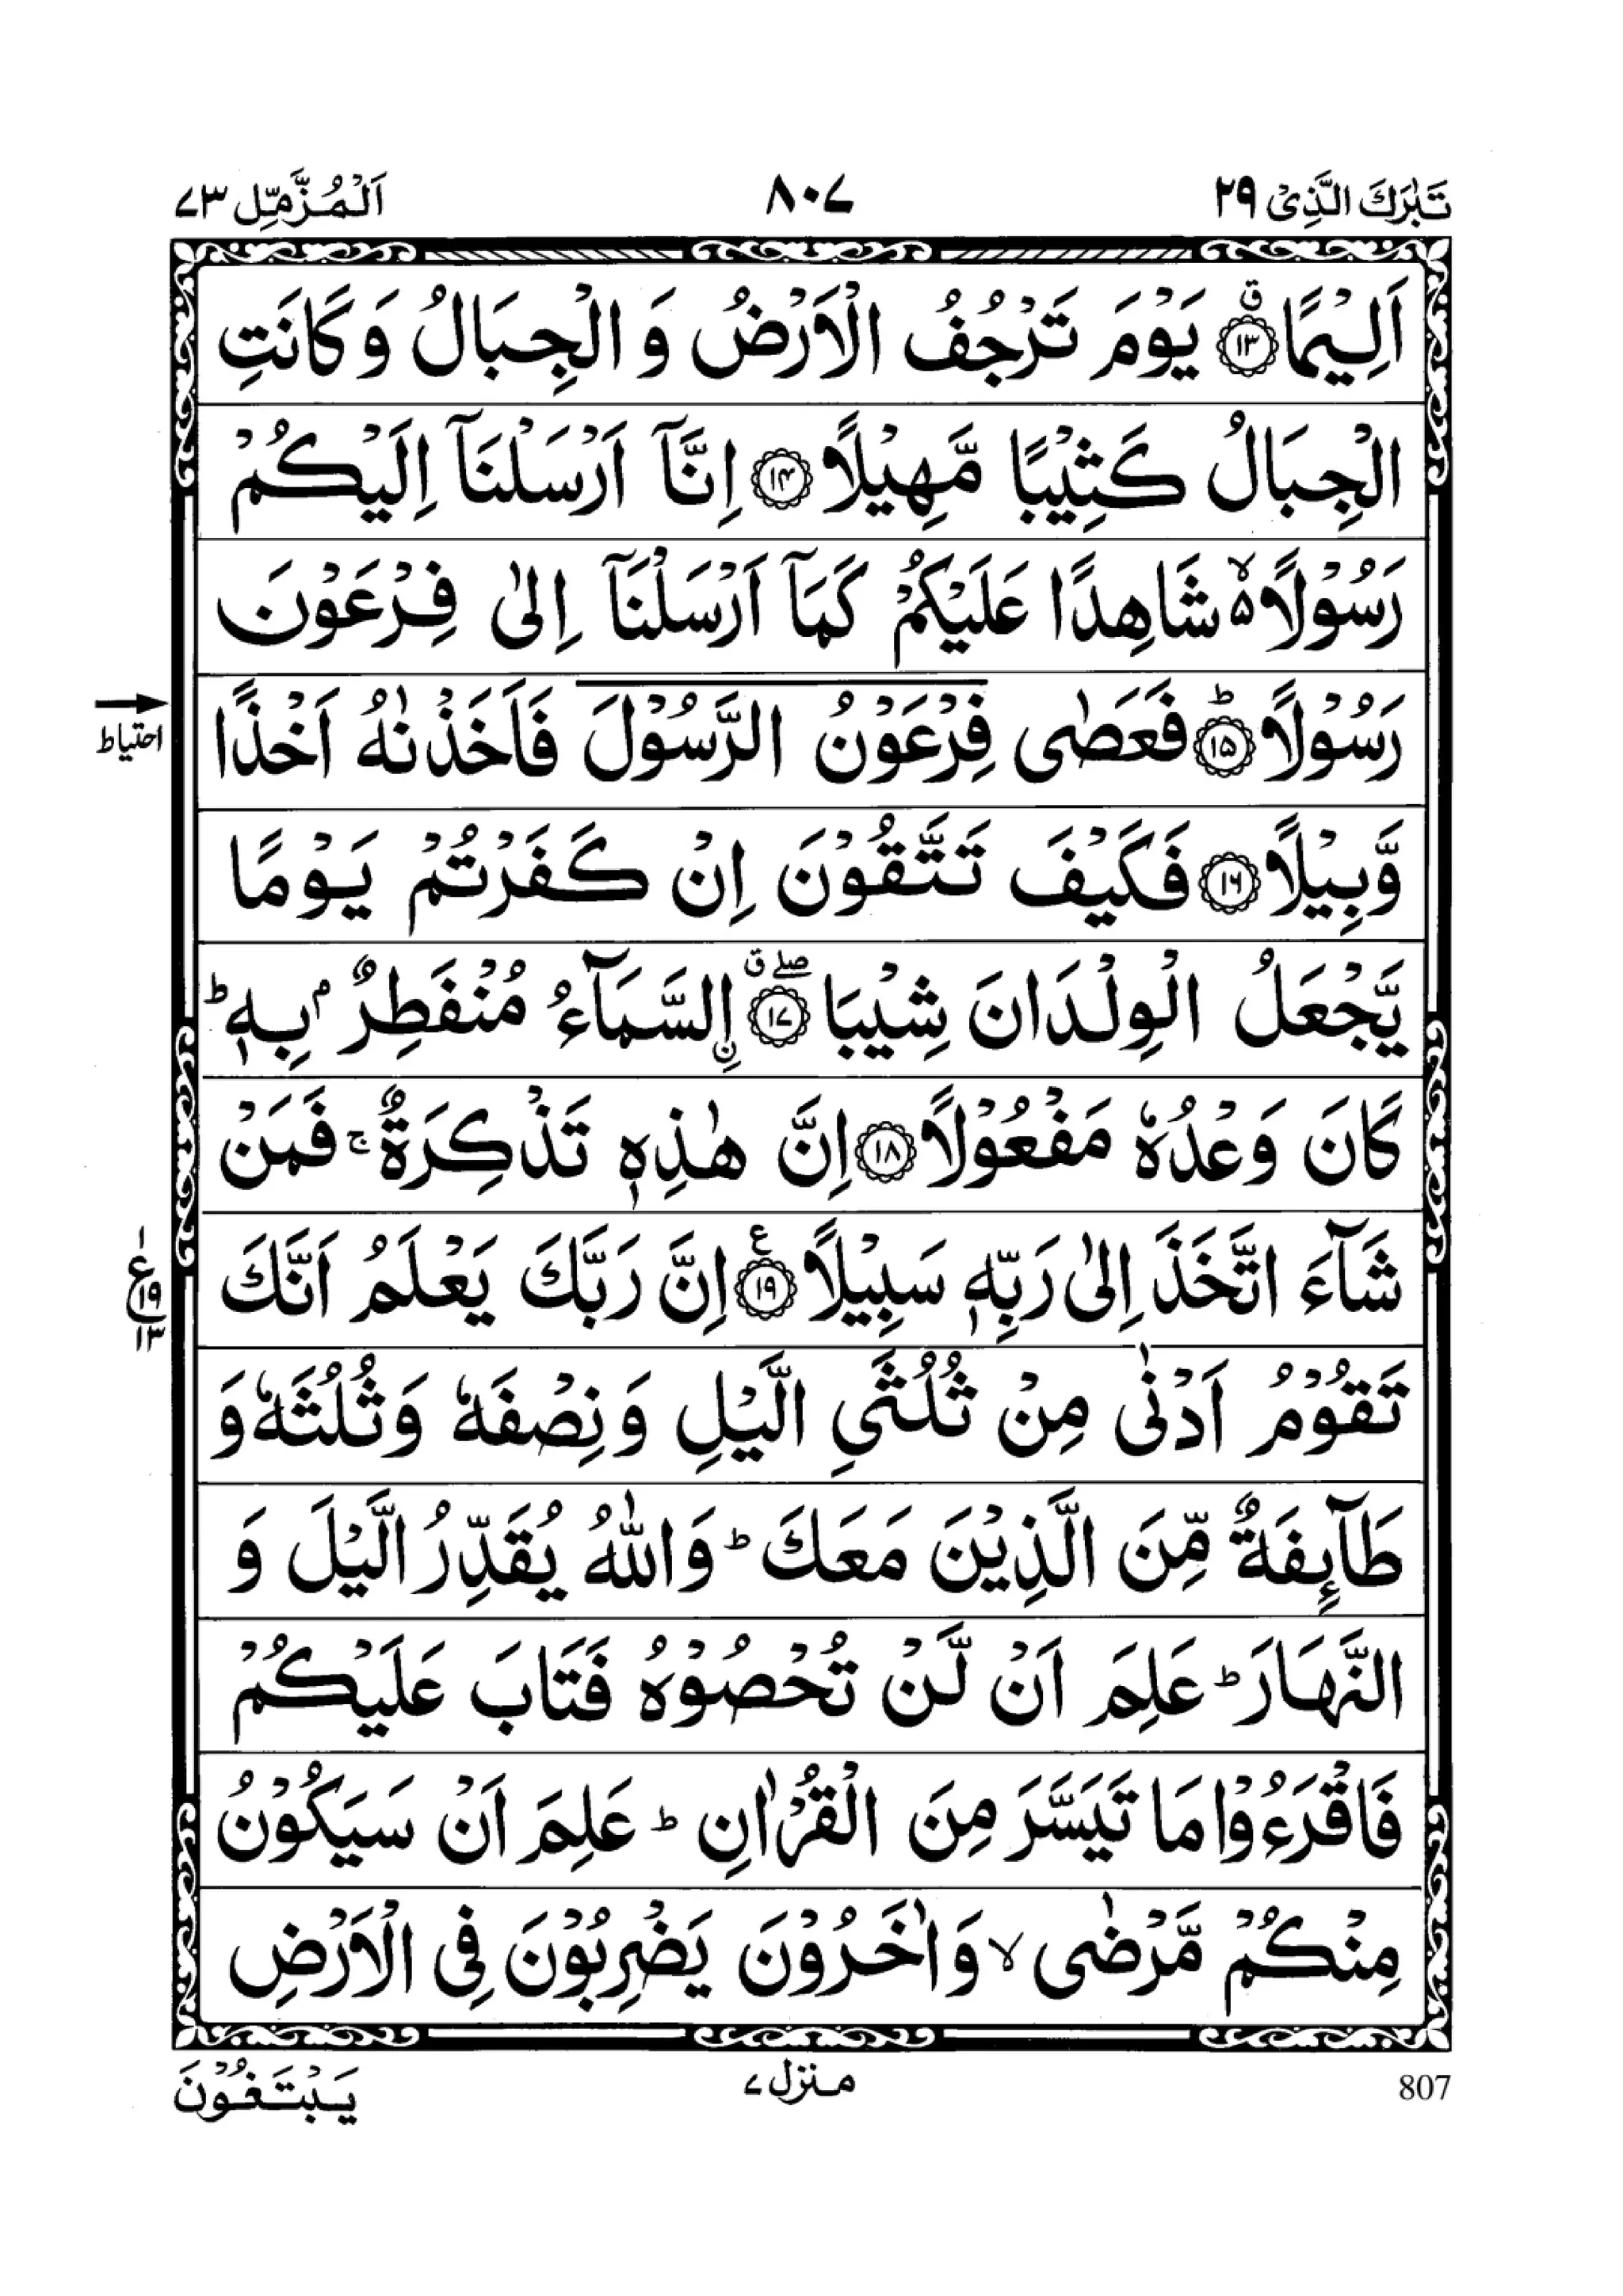 تَبٰرَكَ الَّذِیْ ۲۹
۸۰۷
اَلْمُزَّمِّل ۷۳
اَلِیْمًا ۱۳ ۗق یَوْمَ تَرْجُفُ الْاَرْضُ وَ الْجِبَالُ وَ كَانَتِ
الْجِبَالُ كَثِیْبًا مَّهِیْلًا ۱۴ اِنَّاۤ اَرْسَلْنَاۤ اِلَیْكُمْ
رَسُوْلًا ۵ۙ شَاهِدًا عَلَیْكُمْ كَمَاۤ اَرْسَلْنَاۤ اِلٰی فِرْعَوْنَ
رَسُوْلًا ۱۵ؕ فَعَصٰی فِرْعَوْنُ الرَّسُوْلَ فَاَخَذْنٰهُ اَخْذًا
احتیاط
وَّبِیْلًا ۱۶ فَكَیْفَ تَتَّقُوْنَ اِنْ كَفَرْتُمْ یَوْمًا
یَّجْعَلُ الْوِلْدَانَ شِیْبَا ۱۷ ۖق اِ۟لسَّمَآءُ مُنْفَطِرٌۢ بِهٖ ؕ
كَانَ وَعْدُهٗ مَفْعُوْلًا ۱۸ اِنَّ هٰذِهٖ تَذْكِرَةٌ ۚ فَمَنْ
شَآءَ اتَّخَذَ اِلٰی رَبِّهٖ سَبِیْلًا ۱۹ ع اِنَّ رَبَّكَ یَعْلَمُ اَنَّكَ
۱
ع ۱۹
۱۳
تَقُوْمُ اَدْنٰی مِنْ ثُلُثَیِ الَّیْلِ وَ نِصْفَهٗ وَ ثُلُثَهٗ وَ
طَآىِٕفَةٌ مِّنَ الَّذِیْنَ مَعَكَ ؕ وَ اللّٰهُ یُقَدِّرُ الَّیْلَ وَ
النَّهَارَ ؕ عَلِمَ اَنْ لَّنْ تُحْصُوْهُ فَتَابَ عَلَیْكُمْ
فَاقْرَءُوْا مَا تَیَسَّرَ مِنَ الْقُرْاٰنِ ؕ عَلِمَ اَنْ سَیَكُوْنُ
مِنْكُمْ مَّرْضٰی ۙ وَ اٰخَرُوْنَ یَضْرِبُوْنَ فِی الْاَرْضِ
807
منزل ۷
یَبْتَغُوْنَ